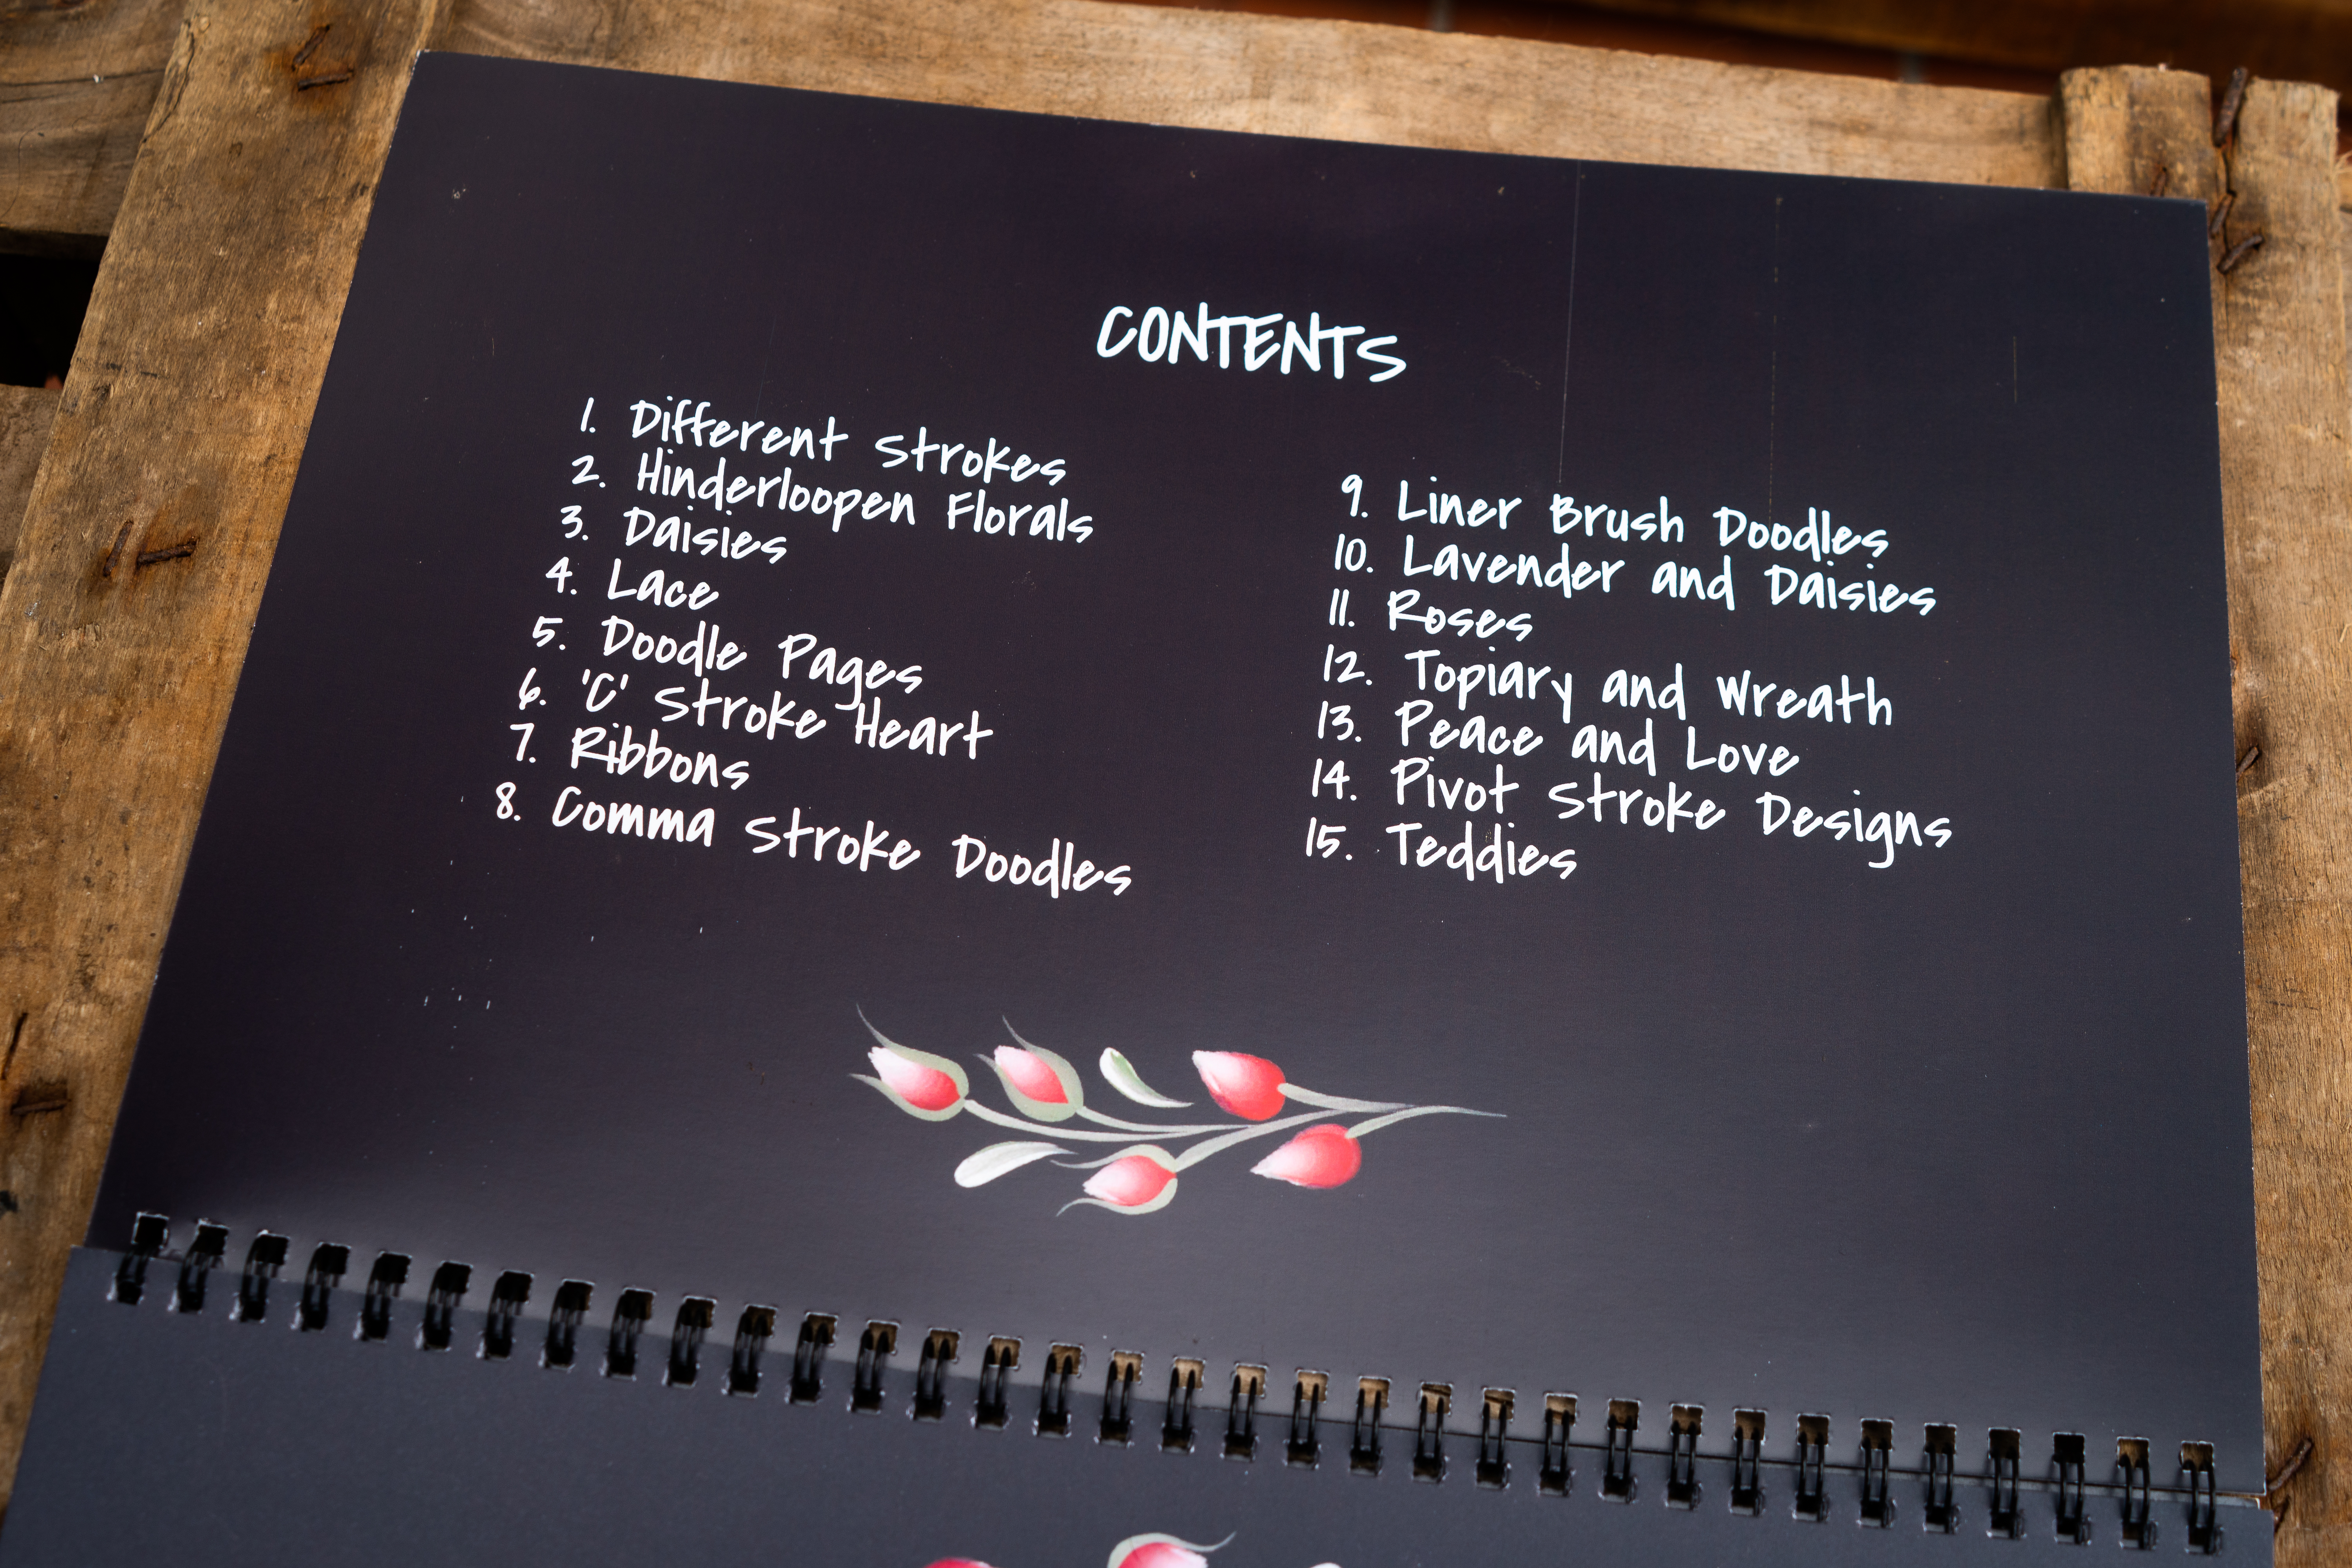 CONTENTS
1. Different Strokes
2. Hinderloopen Florals
3. Daisies
4. Lace
5. Doodle Pages
6. 'C' Stroke Heart
7. Ribbons
8. Comma Stroke Doodles
9. Liner Brush Doodles
10. Lavender and Daisies
11. Roses
12. Topiary and Wreath
13. Peace and Love
14. Pivot Stroke Designs
15. Teddies